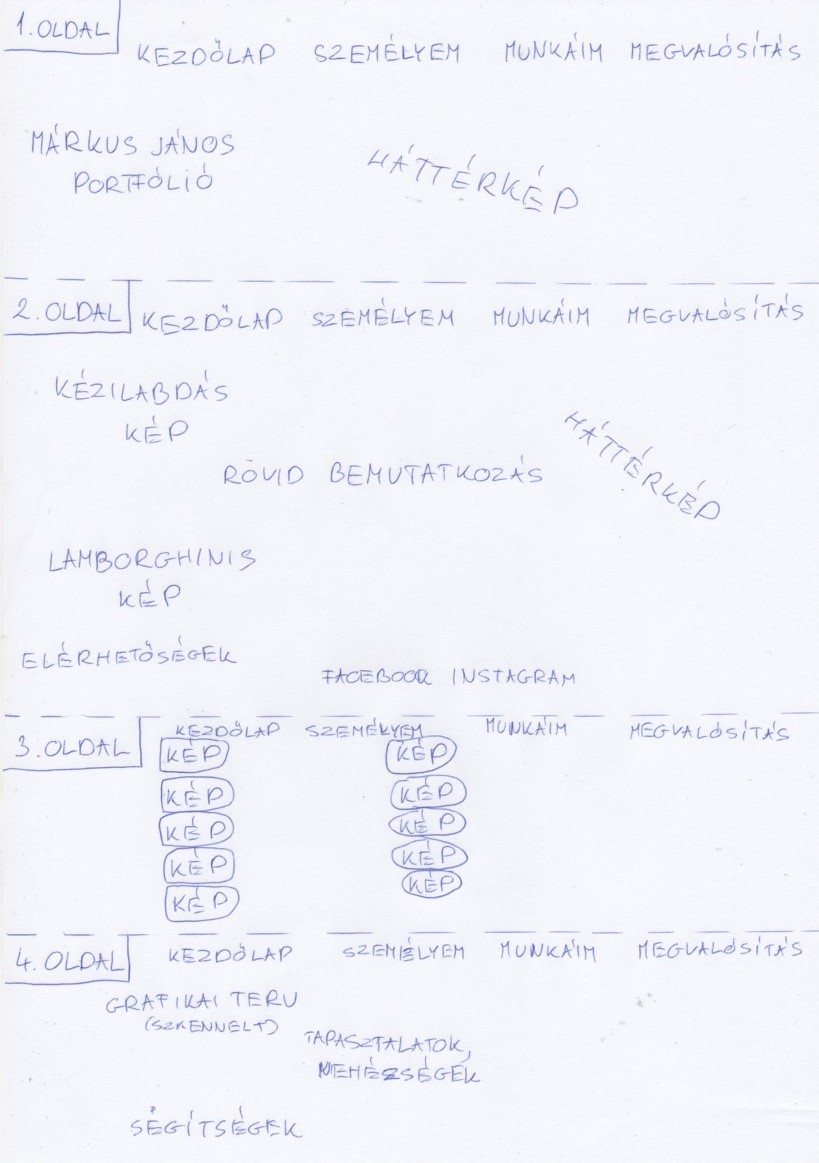 1. OLDAL
KEZDŐLAP SZEMÉLYEM MUNKÁIM MEGVALÓSÍTÁS
MÁRKUS JÁNOS
PORTFÓLIÓ
HÁTTÉRKÉP
2. OLDAL KEZDŐLAP SZEMÉLYEM MUNKÁIM MEGVALÓSÍTÁS
KÉZILABDÁS
KÉP
HÁTTÉRKÉP
RÖVID BEMUTATKOZÁS
LAMBORGHINIS
KÉP
ELÉRHETŐSÉGEK
FACEBOOK INSTAGRAM
3. OLDAL KEZDŐLAP SZEMÉLYEM MUNKÁIM MEGVALÓSÍTÁS
KÉP KÉP
KÉP KÉP
KÉP KÉP
KÉP KÉP
KÉP KÉP
4. OLDAL KEZDŐLAP SZEMÉLYEM MUNKÁIM MEGVALÓSÍTÁS
GRAFIKAI TERV
(SZKENNELT)
TAPASZTALATOK,
NEHÉZSÉGEK
SEGÍTSÉGEK